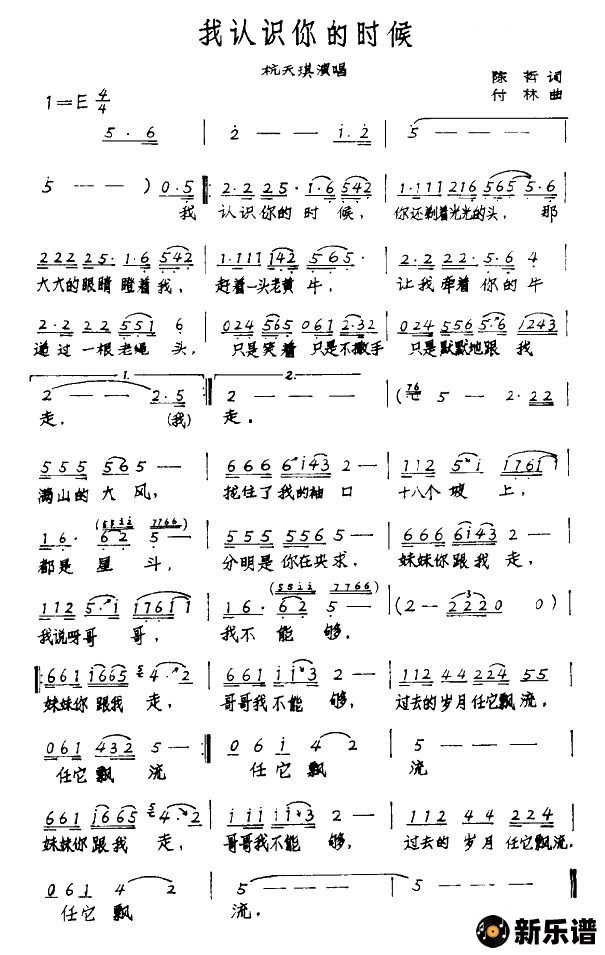 我认识你的时候
杭天琪演唱
陈哲词
1=E 4/4
付林曲
5·6 | 2 — — i·2 | 5 — — —
5 — — ) 0·5 2·2 25· 1·6 542 1·111 216 565 5·6
我 认识你的时候, 你还剃着光光的头, 那
222 25· 1·6 542 1·111 142 565· 2·2 22·5·6 4
大大的眼睛瞪着我, 赶着一头老黄牛, 让我牵着你的牛
2·2 22 551 6 024 565 061 2·32 024 556 5·6 1243
通过一根老绳头, 只是笑着只是不撒手 只是默默地跟我
1. 2.
2 — — 2·5 2 — — — (76 5 — 2·22
走. (我) 走.
555 565 — 666 6i43 2 — 112 5i 1761
满山的大风, 扰住了我的袖口 十八个坡上,
(55ii 7766)
16· 62 5 — 555 5565 — 666 6i43 2 —
都是星斗, 分明是你在央求, 妹妹你跟我走,
(55ii 7766)
112 5·i 17611 16·62 5 — (2 — — 2220 0)
我说呀哥哥, 我不能够.
661 i665 4·2 661 ii3 2 — 112 44 224 55
妹妹你跟我走, 哥哥我不能够, 过去的岁月任它飘流,
061 432 5 — 06i 4 2 5 — — —
任它飘流 任它飘 流
661 i665 4·2 iii iii3 2 — 112 44 224
妹妹你跟我走, 哥哥我不能够, 过去的岁月任它飘流.
061 4 2 5 — — — 5 — — —
任它飘 流.
新乐谱